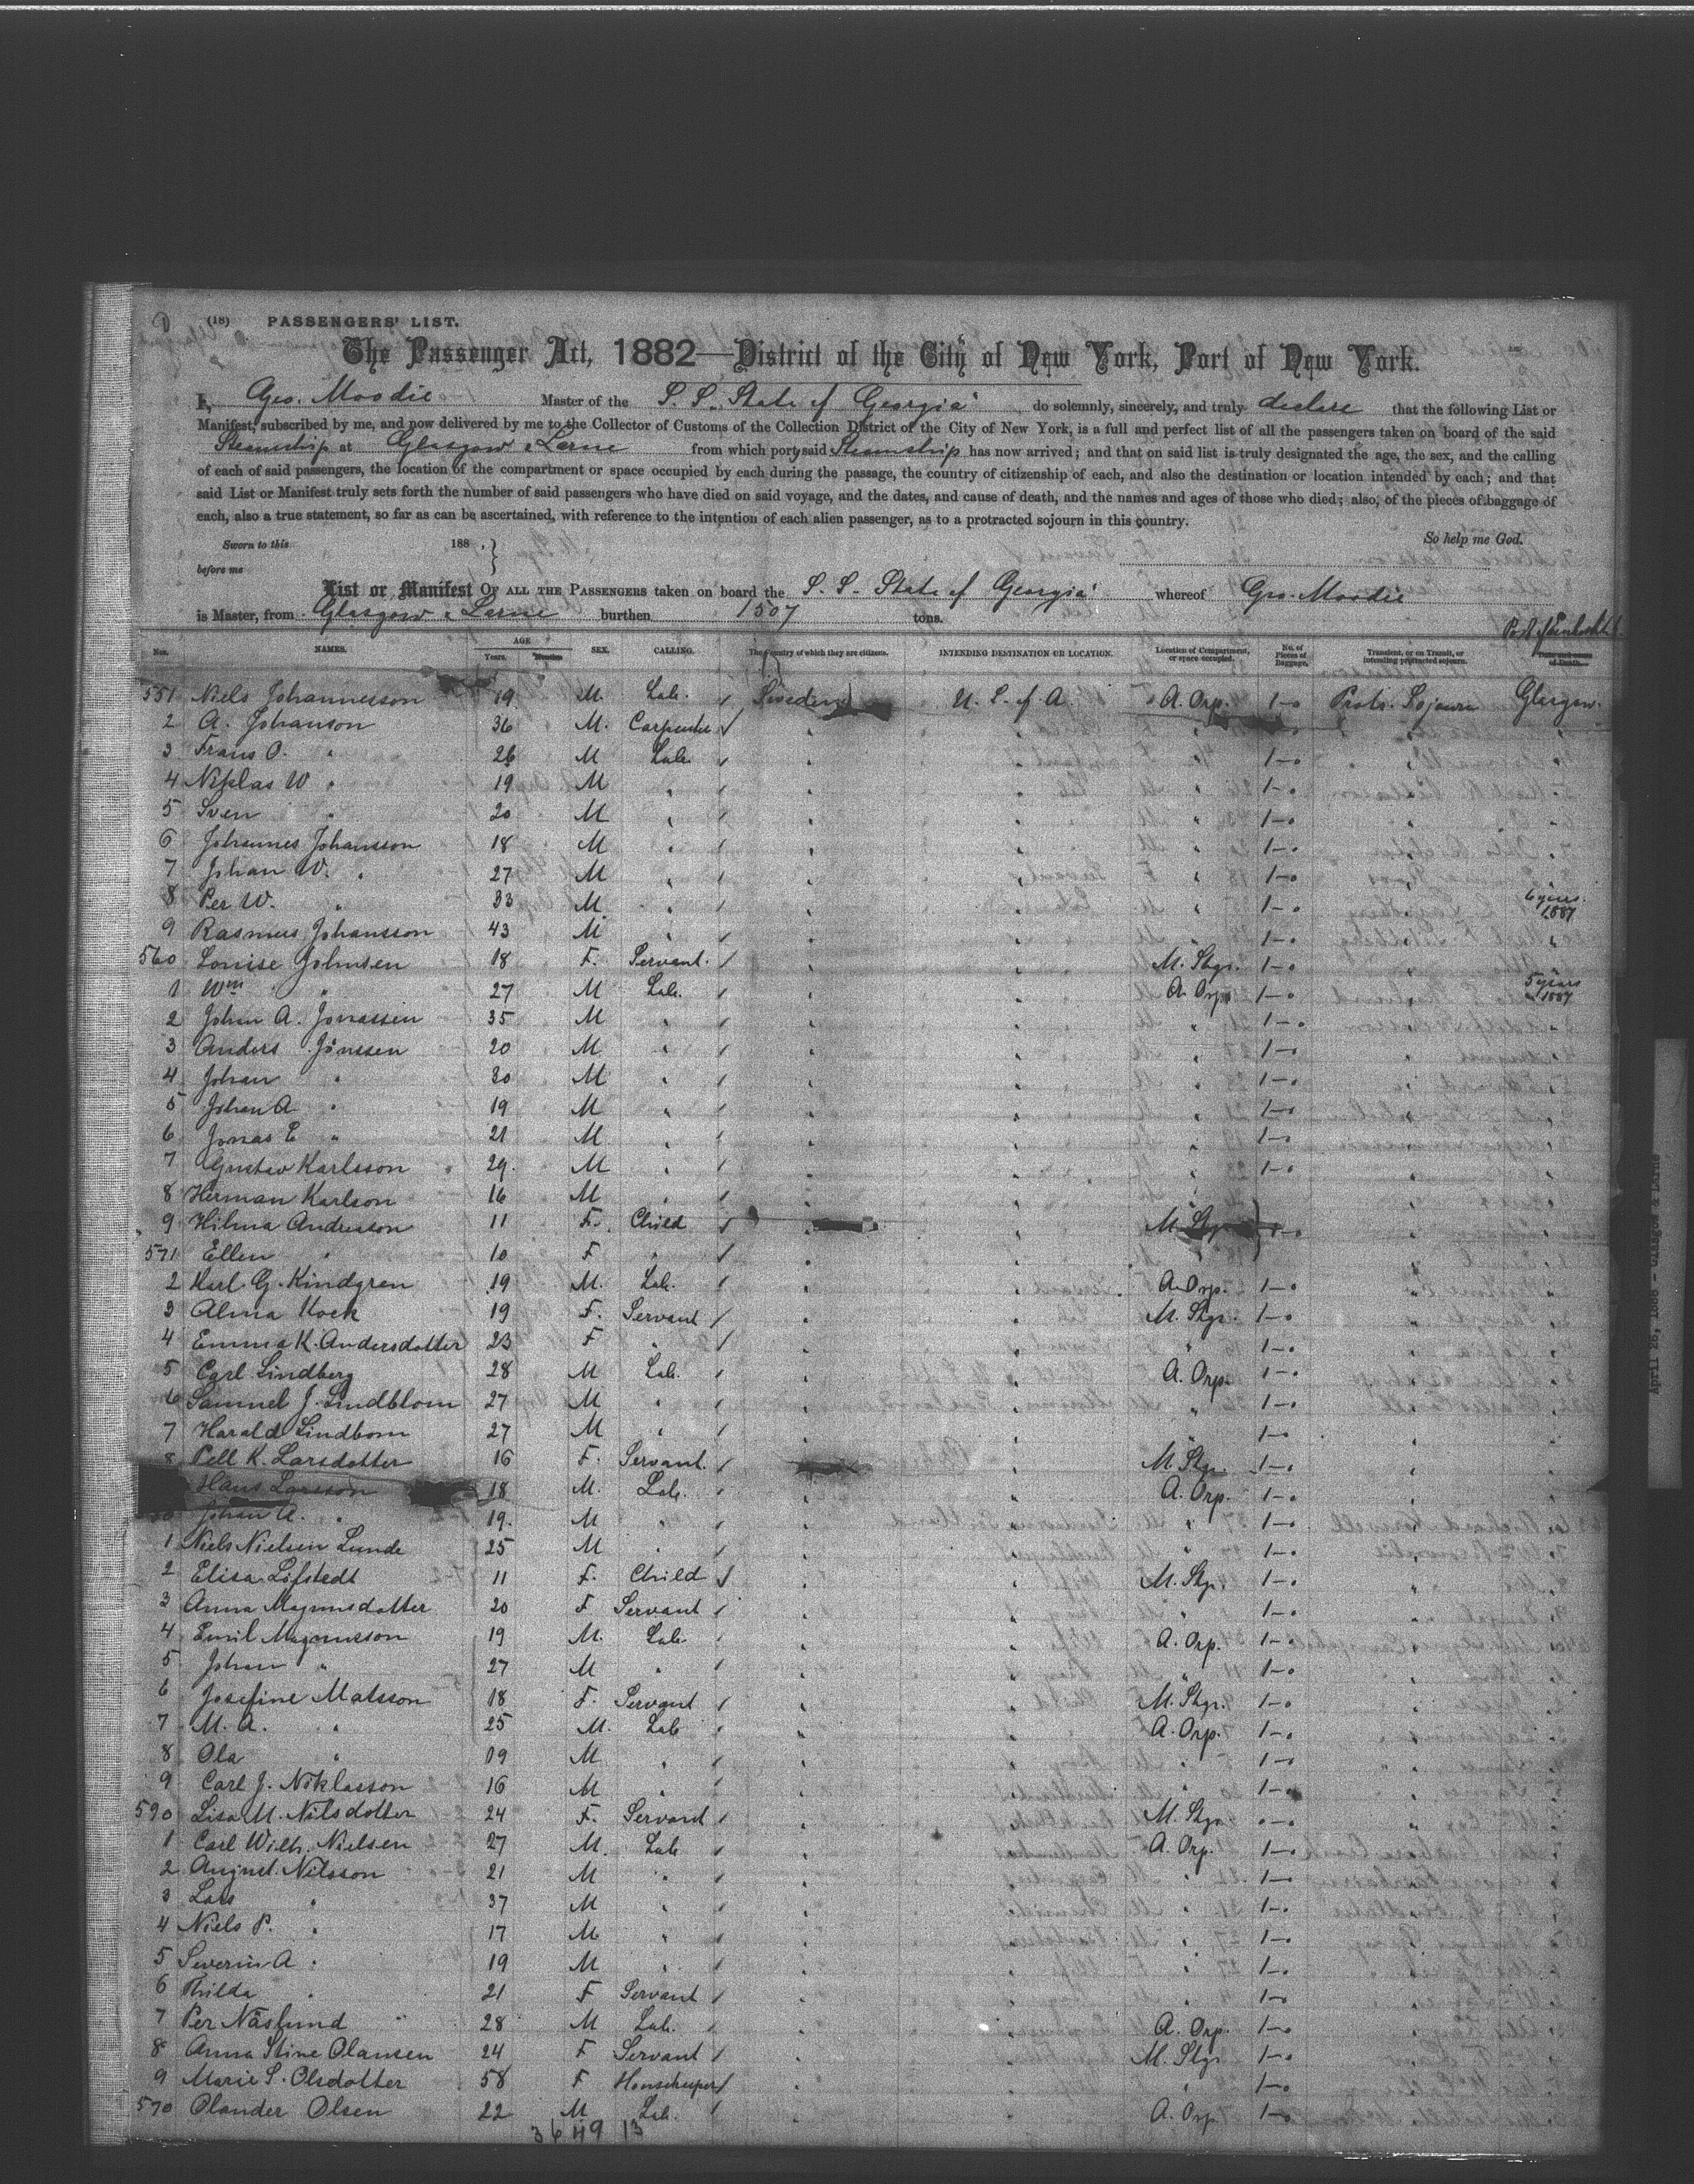 (18) PASSENGERS' LIST.
The Passenger Act, 1882—District of the City of New York, Port of New York.
I, Geo. Moodie Master of the S. S. "State of Georgia" do solemnly, sincerely, and truly declare that the following List or
Manifest, subscribed by me, and now delivered by me to the Collector of Customs of the Collection District of the City of New York, is a full and perfect list of all the passengers taken on board of the said
Steamship at Glasgow & Larne from which port, said Steamship has now arrived; and that on said list is truly designated the age, the sex, and the calling
of each of said passengers, the location of the compartment or space occupied by each during the passage, the country of citizenship of each, and also the destination or location intended by each; and that
said List or Manifest truly sets forth the number of said passengers who have died on said voyage, and the dates, and cause of death, and the names and ages of those who died; also, of the pieces of baggage of
each, also a true statement, so far as can be ascertained, with reference to the intention of each alien passenger, as to a protracted sojourn in this country.
Sworn to this 188 . So help me God.
before me
List or Manifest OF ALL THE PASSENGERS taken on board the S. S. State of Georgia whereof Geo. Moodie
is Master, from Glasgow & Larne burthen 1507 tons.
Nos. NAMES. AGE Years. Months SEX. CALLING. The Country of which they are citizens. INTENDING DESTINATION OR LOCATION. Location of Compartment, or space occupied. No. of Pieces of Baggage. Transient, or on Transit, or intending protracted sojourn. Date and cause of Death.
551 Niels Johannesson 19 M. Lab. Sweden U. S. of A. A. Orp. 1 Protr. Sojourn Glasgow.
2 A. Johanson 36 M. Carpenter "
3 Frans O. " 26 M Lab. " 1
4 Niklas W " 19 M " 1
5 Sven " 20 M " 1
6 Johannes Johansson 18 M " 1
7 Johan W. " 27 M " 1
8 Per W. " 33 M " 1 6 years 1887
9 Rasmus Johansson 43 M " 1
560 Louise Johnsen 18 F. Servant. M. Stgr. 1
1 Wm " 27 M Lab. A. Orp. 1 5 years 1887
2 Johan A. Jonassen 35 M " 1
3 Anders Jönssen 20 M " 1
4 Johan " 30 M " 1
5 Johan A " 19 M " 1
6 Jonas E " 21 M " 1
7 Gustav Karlsson 29. M " 1
8 Herman Karlson 16 M "
9 Hilma Andersson 11 F. Child M. Stgr 1
571 Ellen " 10 F "
2 Karl G. Kindgren 19 M. Lab. A. Orp. 1
3 Alma Kock 19 F. Servant M. Stgr. 1
4 Emma K. Andersdotter 23 F " 1
5 Carl Lindberg 28 M Lab. A. Orp. 1
6 Samuel J. Lindblom 27 M " 1
7 Harald Lindbom 27 M " 1
8 Pell K. Larsdotter 16 F. Servant. M. Stgr. 1
Hans Larsson 18 M. Lab. A. Orp. 1
Johan A. " 19. M " 1
1 Niels Nielsen Lunde 25 M " 1
2 Elisa Löfstedt 11 F. Child M. Stgr. 1
3 Anna Magnusdotter 20 F Servant " 1
4 Emil Magnusson 19 M. Lab. A. Orp. 1
5 Johan " 27 M " 1
6 Josefine Matsson 18 F. Servant M. Stgr. 1
7 M. A. " 25 M. Lab A. Orp. 1
8 Ola " 09 M " 1
9 Carl J. Niklasson 16 M " 1
590 Lisa M. Nilsdotter 24 F. Servant M. Stgr
1 Carl Wilh. Nielsen 27 M. Lab A. Orp. 1
2 August Nilsson 21 M " 1
3 Lars " 37 M " 1
4 Niels P. " 17 M " 1
5 Severin A " 19 M " 1
6 Thilda " 21 F Servant 1
7 Per Näslund 28 M Lab. A. Orp. 1
8 Anna Stine Olausen 24 F Servant M. Stgr 1
9 Marie S. Olsdotter 58 F Housekeeper " 1
570 Olander Olsen 22 M Lab. A. Orp 1
36 49 13
April 26, 1888 - Glasgow & Larne